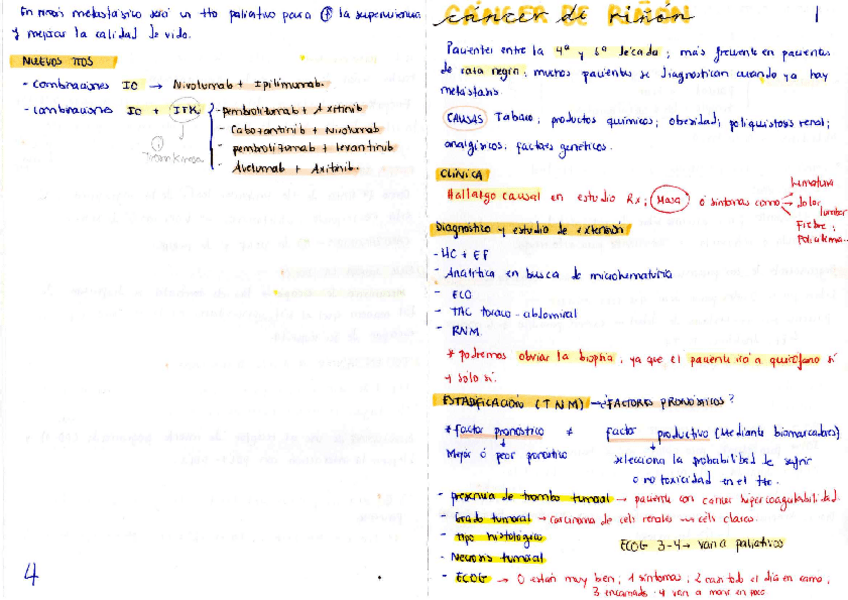 En RMSIS metastásico será un tto paliativo para ↑ la supervivencia
y mejorar la calidad de vida.
NUEVOS TTOS
- Combinaciones IC → Nivolumab + Ipilimumab.
- Combinaciones IC + ITK
- pembrolizumab + Axitinib
- Cabozantinib + Nivolumab
- pembrolizumab + levantinib
- Avelumab + Axitinib.
4
CÁNCER DE RIÑÓN
cáncer de riñón
1
Pacientes entre la 4ª y 6ª década; más frecuente en pacientes
de raza negra; muchos pacientes se diagnostican cuando ya hay
metástasis.
CAUSAS Tabaco; productos químicos; obesidad; poliquistosis renal;
analgésicos; factores genéticos.
CLÍNICA
Hallazgo causal en estudio Rx; Masa ó síntomas como
hematuria
dolor
lumbar
Fiebre;
Policitemia...
Diagnóstico y estudio de extensión
- HC + EF
- Analítica en busca de microhematuria
- ECO
- TAC toraco-abdominal
- RNM.
* podremos obviar la biopsia, ya que el paciente irá a quirófano sí
o sólo sí.
ESTADIFICACIÓN (TNM) → ¿FACTORES PRONÓSTICOS?
* factor pronóstico ≠ factor productivo (Mediante biomarcadores)
Mejor ó peor pronóstico
selecciona la probabilidad de sufrir
o no toxicidad en el tto.
- presencia de trombo tumoral → paciente con cáncer hipercoagulabilidad.
- Grado tumoral → carcinoma de céls renales céls claras.
- tipo histológico
- Necrosis tumoral
ECOG 3-4 → van a paliativos
- ECOG → 0 están muy bien; 1 síntomas; 2 casi todo el día en cama;
3 encamado 4 van a morir en poco